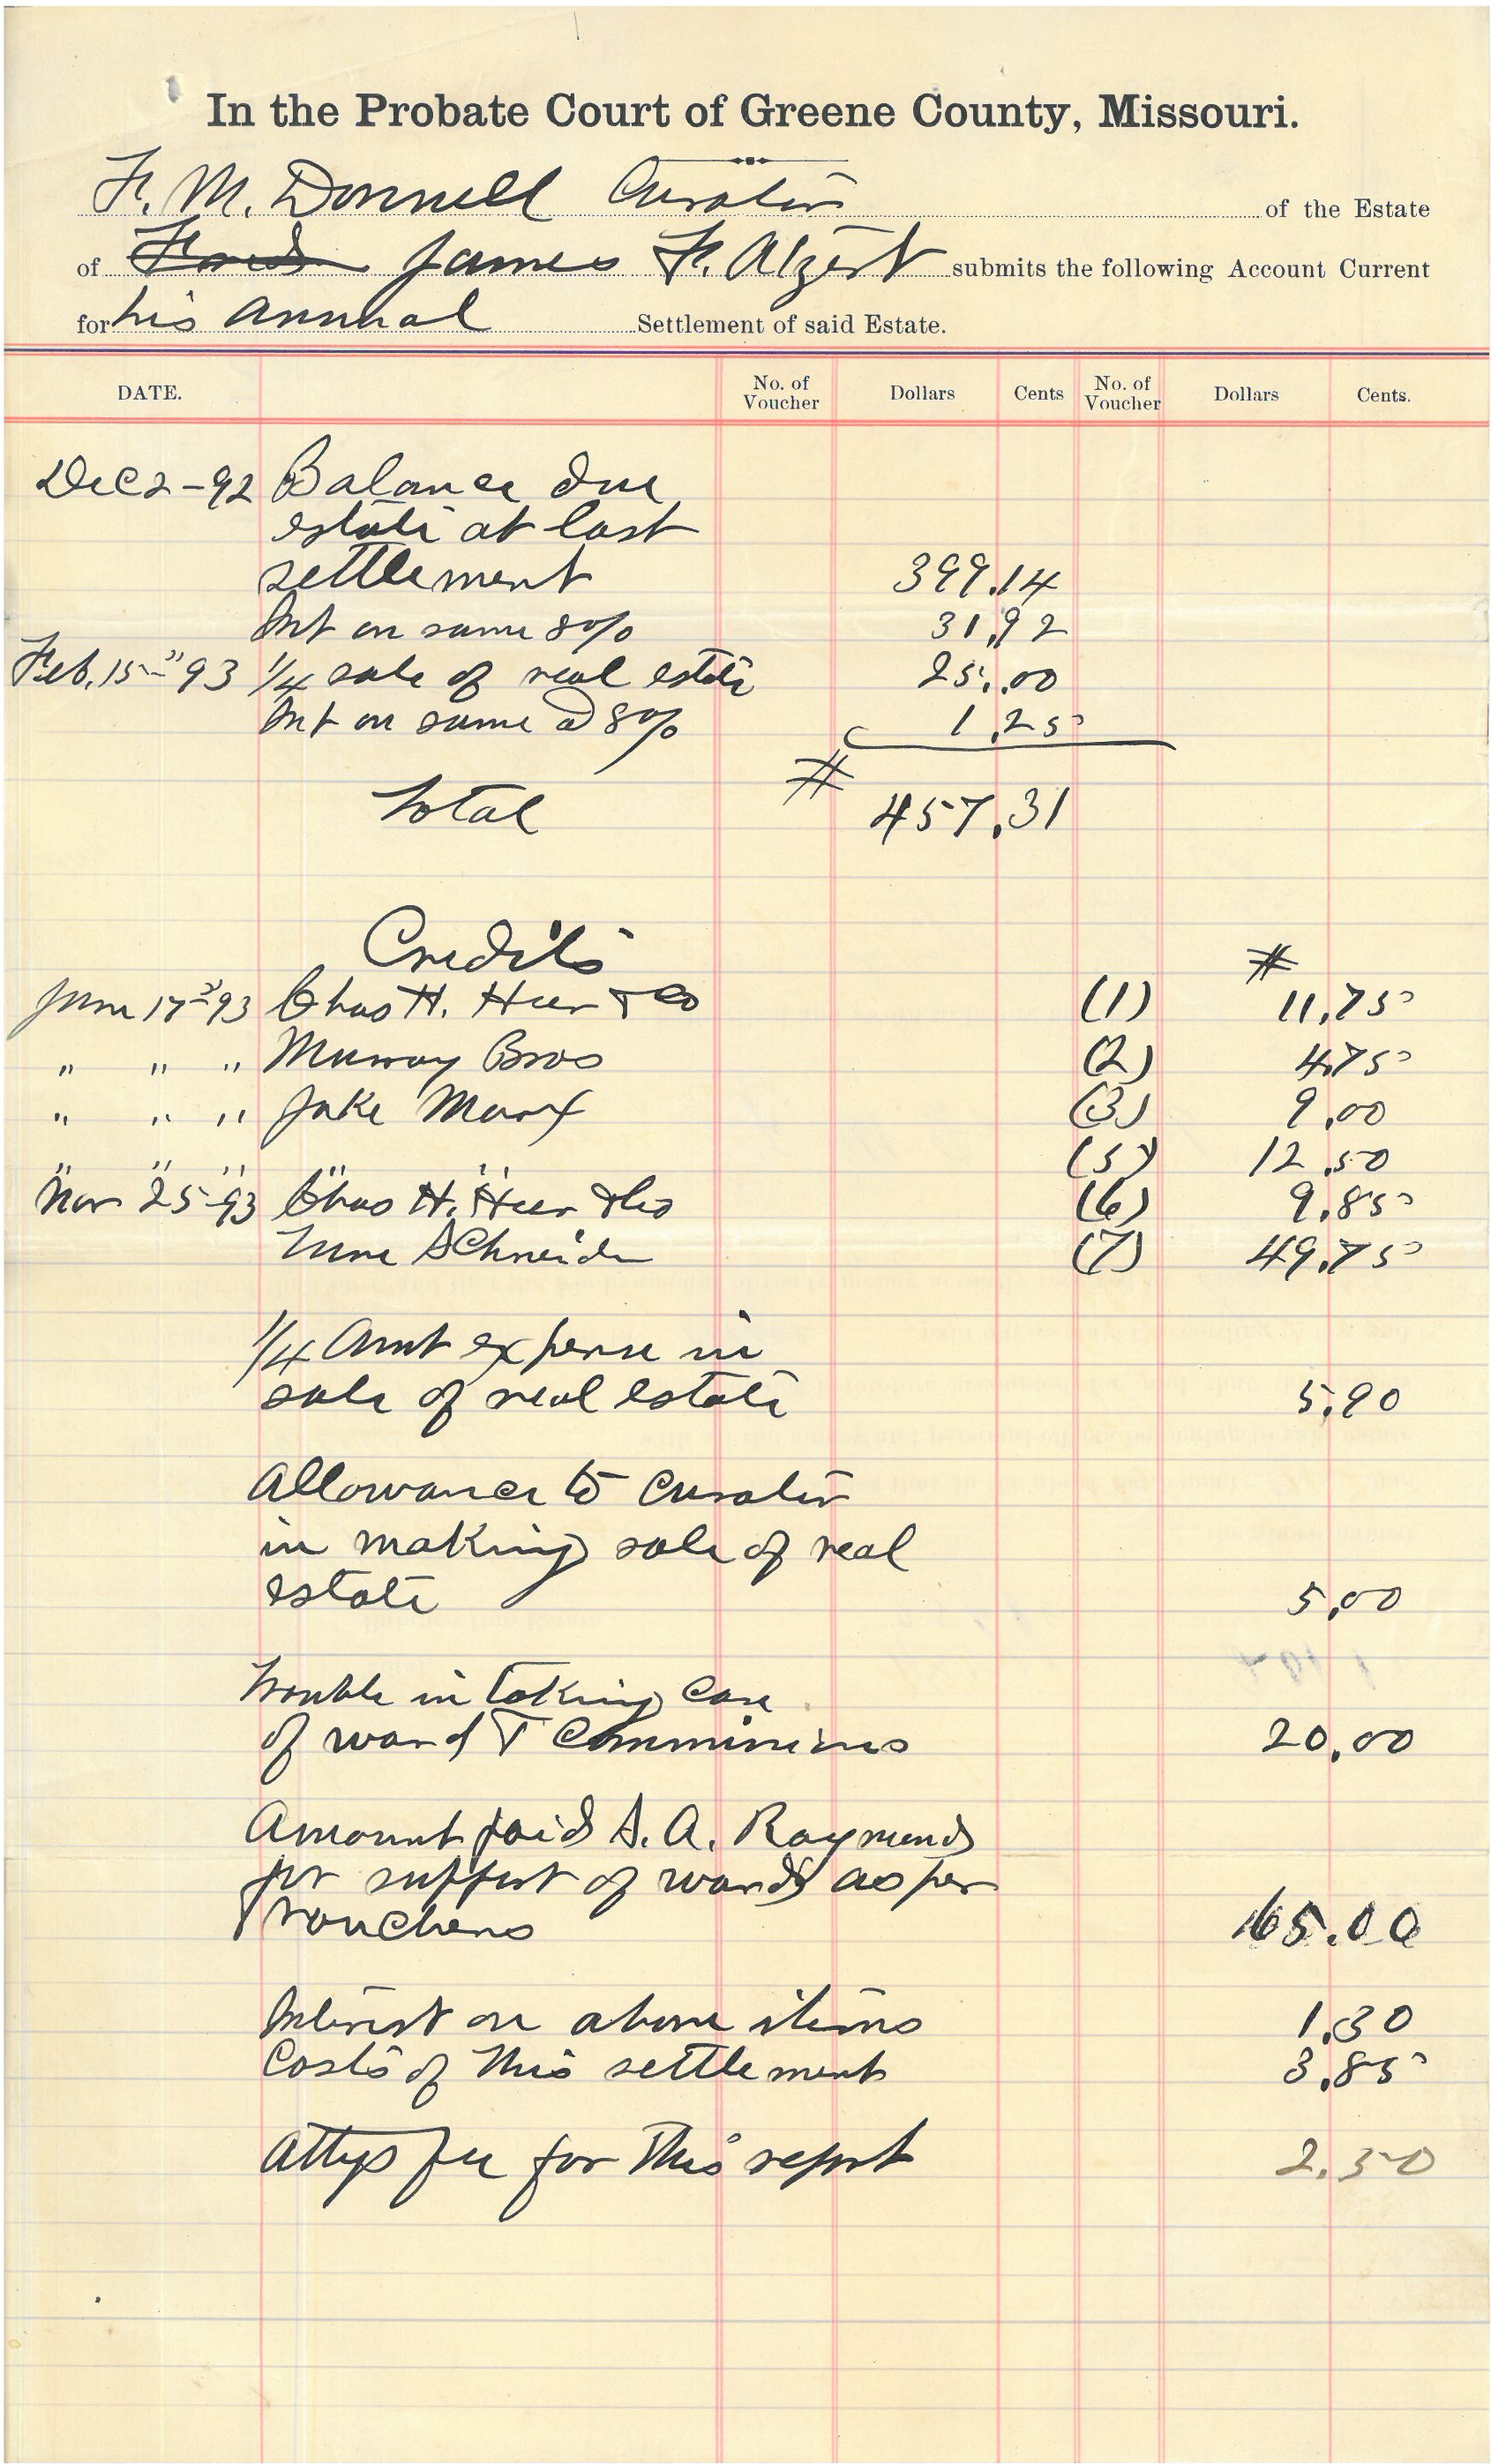 In the Probate Court of Greene County, Missouri.
F. M. Donnell Curator of the Estate
of James F. Alzert submits the following Account Current
for his annual Settlement of said Estate.
DATE. No. of Voucher Dollars Cents No. of Voucher Dollars Cents.
Dec 2-92 Balance due
estate at last
settlement 399.14
Int on same 8% 31.92
Feb. 15" 93 1/4 sale of real estate 25.00
Int on same @ 8% 1.25
Total # 457.31
Credits #
June 17" 93 Chas H. Heer & Co (1) 11.75
" " " Murray Bros (2) 4.75
" " " Jake Marx (3) 9.00
" " " " " (5) 12.50
Nov 25-93 Chas H. Heer & Co (6) 9.85
Schneider (7) 49.75
1/4 Amt expense in
sale of real estate 5.90
Allowance to Curator
in making sale of real
estate 5.00
Trouble in taking care
of ward & Commissions 20.00
Amount paid S. A. Raymond
for support of ward as per
vouchers 165.00
Interest on above items 1.30
Costs of this settlement 3.85
Attys fee for this report 2.50